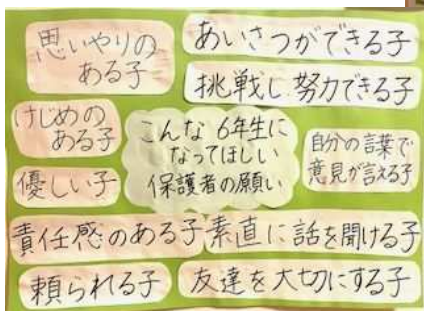 思いやりの
ある子
あいさつができる子
挑戦し努力できる子
けじめの
ある子
こんな6年生に
なってほしい
保護者の願い
自分の言葉で
意見が言える子
優しい子
責任感のある子
素直に話を聞ける子
頼られる子
友達を大切にする子